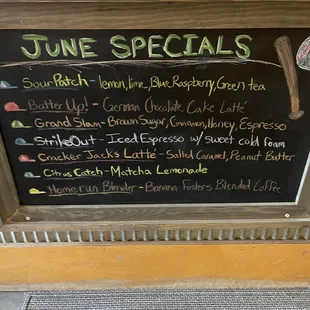 JUNE SPECIALS
Sour Patch - lemon, lime, Blue Raspberry, Green tea
Batter Up! - German Chocolate Cake Latté
Grand Slam - Brown Sugar, Cinnamon, Honey, Espresso
StrikeOut - Iced Espresso w/ sweet cold foam
Cracker Jacks Latté - Salted Caramel, Peanut Butter
Citrus Catch - Matcha Lemonade
Homerun Blender - Banana Fosters Blended Coffee